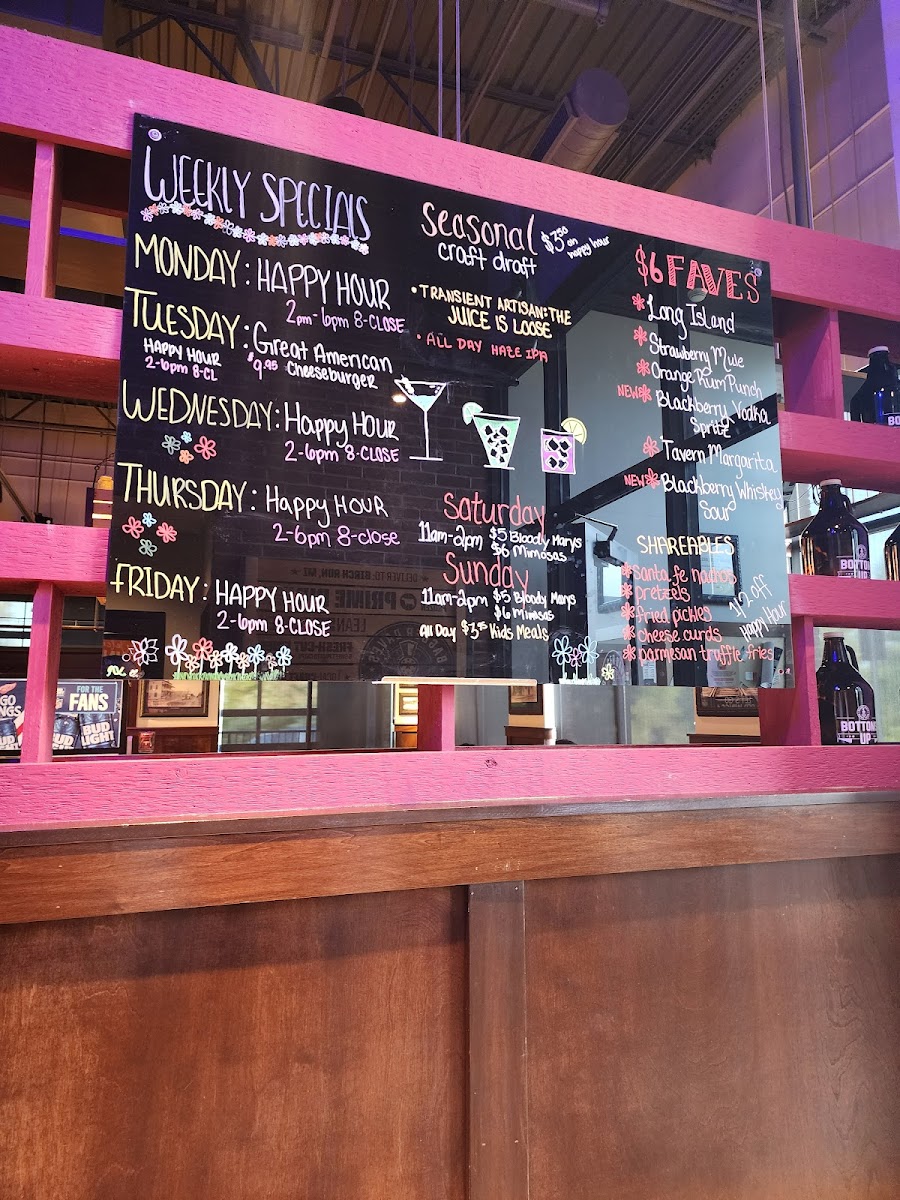 WEEKLY SPECIALS
MONDAY: HAPPY HOUR
2pm-6pm 8-CLOSE
TUESDAY: Great American
HAPPY HOUR
2-6pm 8-CL
$9.95 CHEESEBURGER
WEDNESDAY: Happy HOUR
2-6pm 8-CLOSE
THURSDAY: Happy HOUR
2-6pm 8-close
FRIDAY: HAPPY HOUR
2-6pm 8-CLOSE
Seasonal
craft draft
$3.50
on
happy hour
• TRANSIENT ARTISAN: THE
JUICE IS LOOSE
• ALL DAY HAZE IPA
Saturday
11am-2pm $5 Bloody Marys
$6 Mimosas
Sunday
11am-2pm $5 Bloody Marys
$6 Mimosas
All Day Kids Meals
$6 FAVES
Long Island
Strawberry Mule
Orange Rum Punch
NEW Blackberry Vodka
Spritz
Tavern Margarita
NEW Blackberry Whiskey
Sour
SHAREABLES
santa fe nachos
pretzels
fried pickles
cheese curds
parmesan truffle fries
1/2 off
Happy Hour
DELIVER TO: BIRCH RUN, MI
PRIME
LEAN
FRESH-CUT
FOR THE
FANS
BUD
LIGHT
BOTTOMS
UP